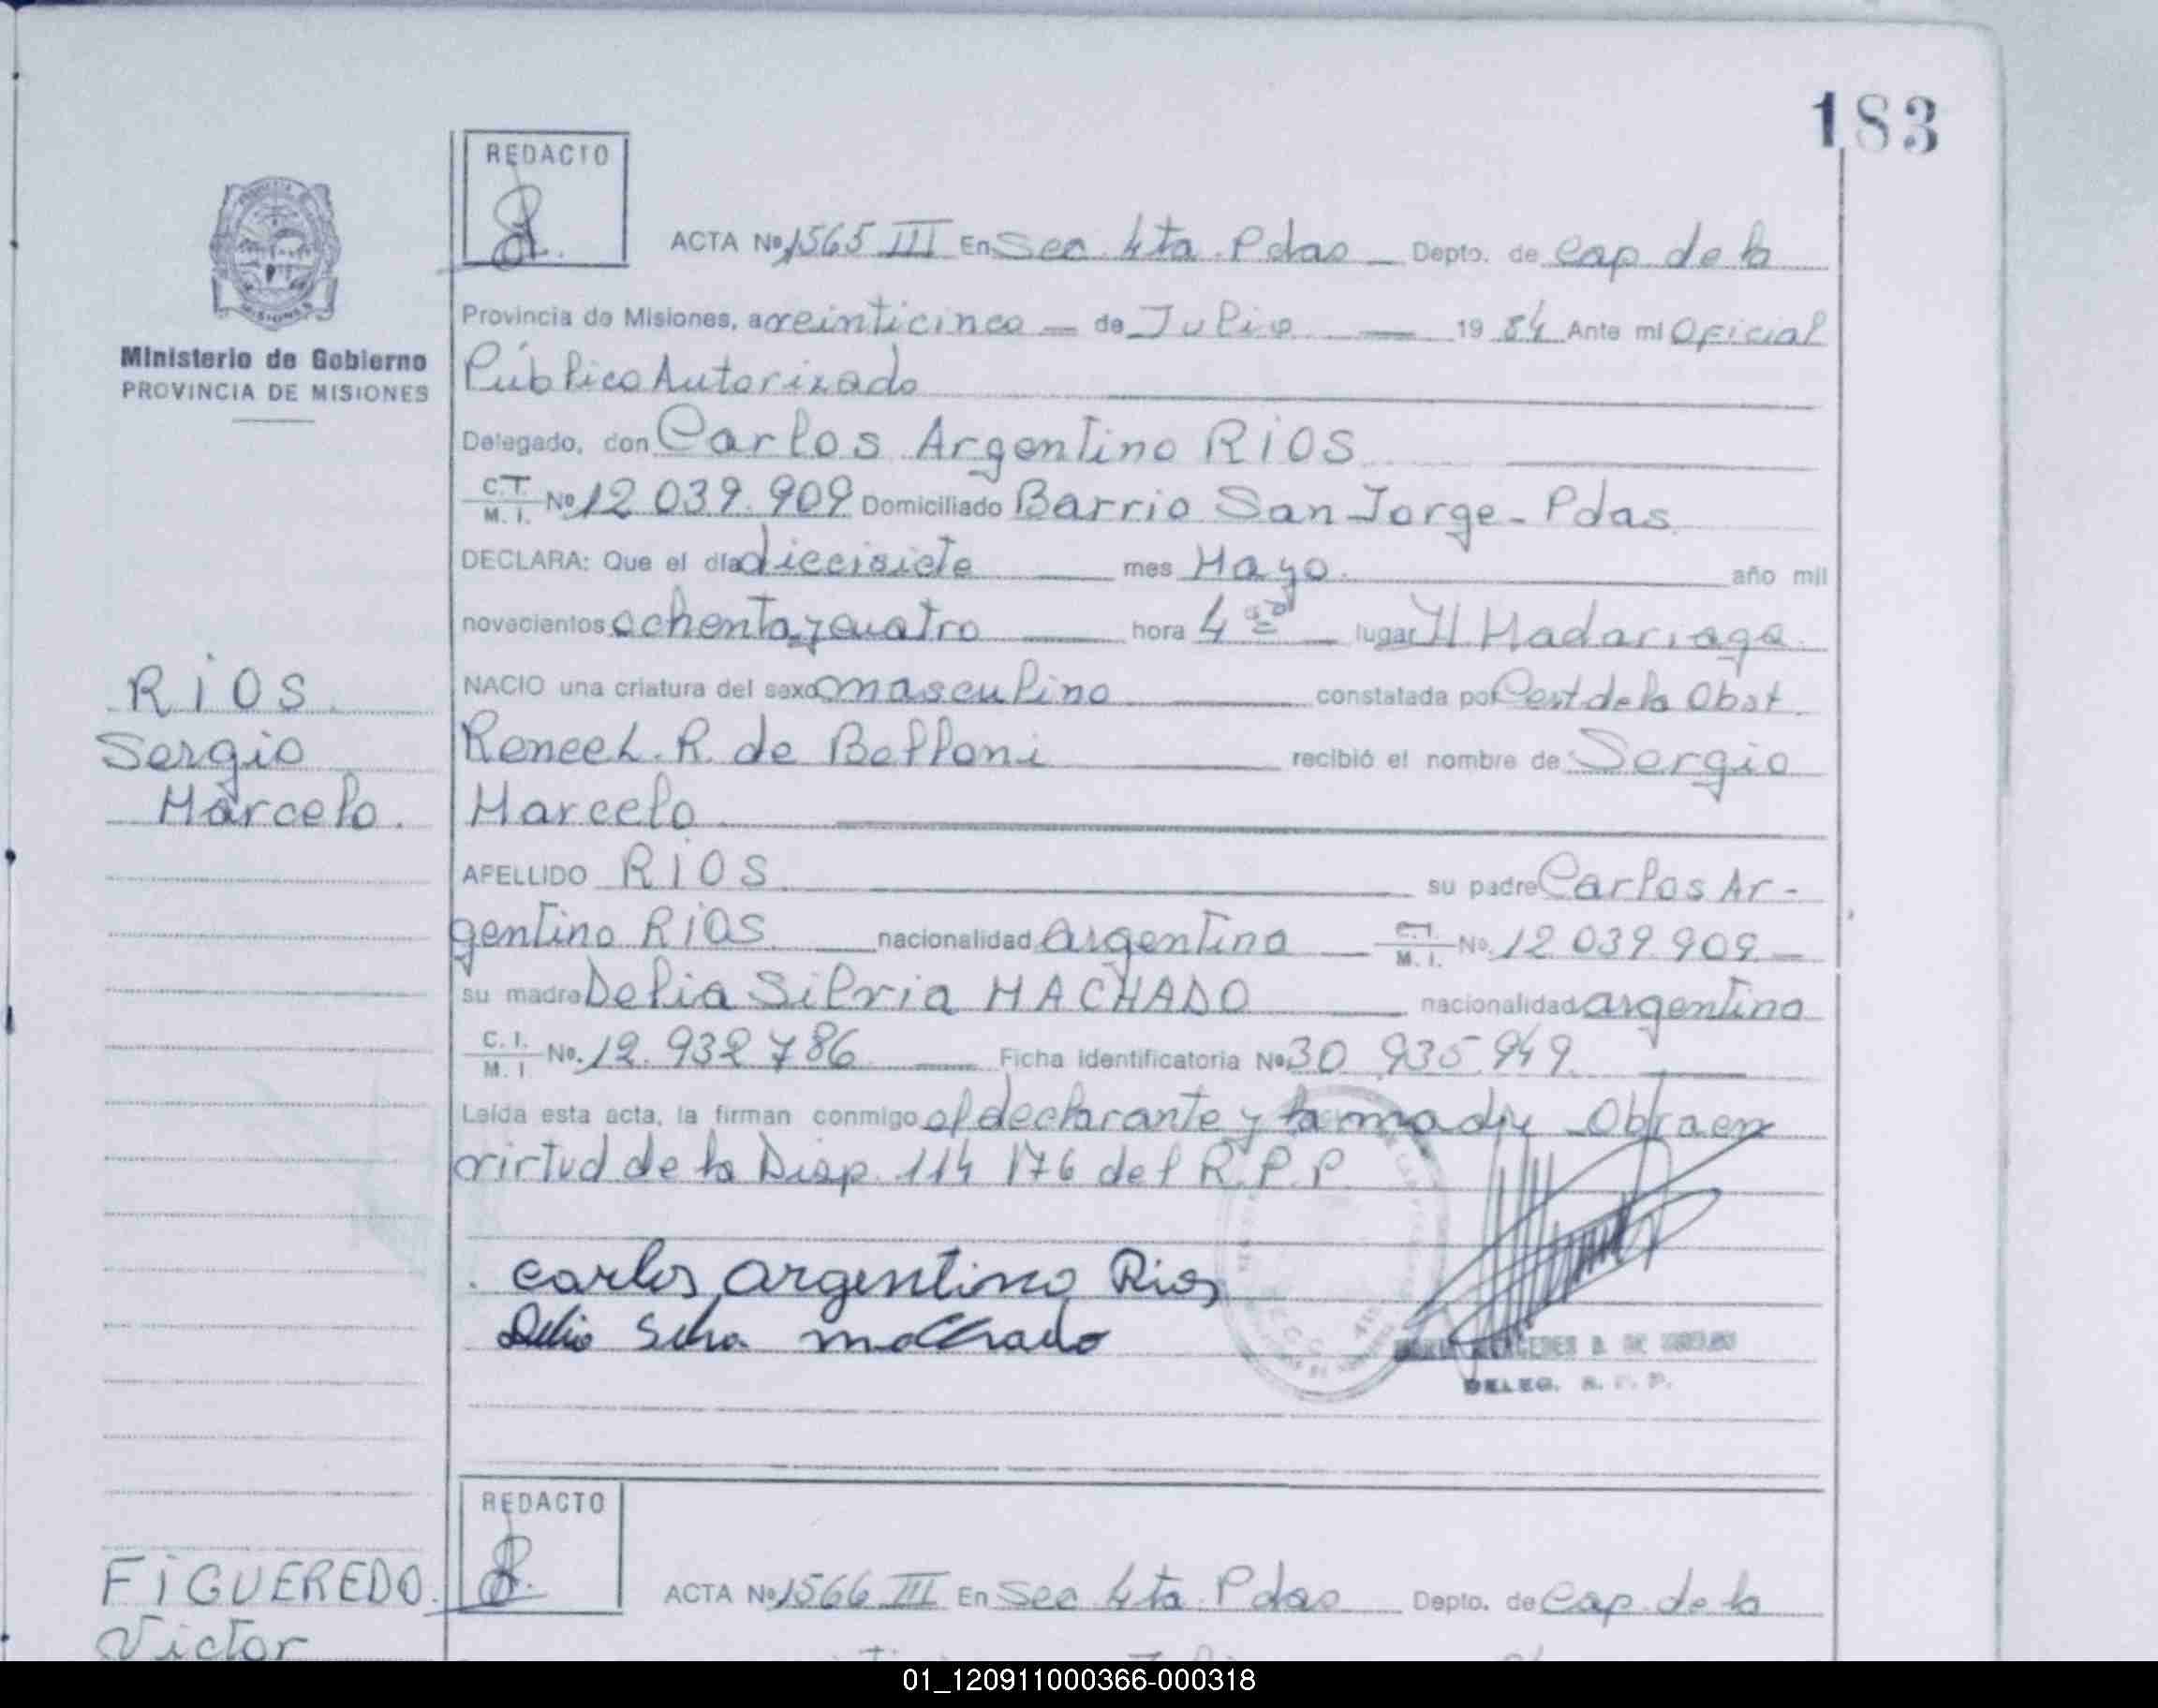 183
REDACTO
ACTA Nº 1565 III En Sec. 4ta. Pdas Depto. de Cap de la
Provincia de Misiones, a veinticinco de Julio 1984 Ante mi Oficial
Ministerio de Gobierno
PROVINCIA DE MISIONES
Público Autorizado
Delegado, don Carlos Argentino RIOS
C.I. M.I. Nº 12 039.909 Domiciliado Barrio San Jorge - Pdas
DECLARA: Que el día diecisiete mes Mayo. año mil
novecientos ochenta y cuatro hora 4 lugar H Madariaga.
RIOS
Sergio
Marcelo.
NACIO una criatura del sexo masculino constatada por Cert de la Obst.
Renee L. R. de Belloni recibió el nombre de Sergio
Marcelo
APELLIDO RIOS su padre Carlos Ar-
gentino RIOS nacionalidad argentina C.I. M.I. Nº. 12 039.909
su madre Delia Silvia MACHADO nacionalidad argentina
C.I. M.I. No. 12.932 786 Ficha identificatoria Nº 30 935.949.
Leída esta acta, la firman conmigo el declarante y la madre Obra en
virtud de la Disp. 114 176 del R.P.P.
carlos argentino Rios
Delia Silvia machado
DELEG. R. P. P.
REDACTO
FIGUEREDO.
Victor
ACTA Nº 1566 III En Sec 4ta. Pdas Depto. de Cap. de la
01_120911000366-000318